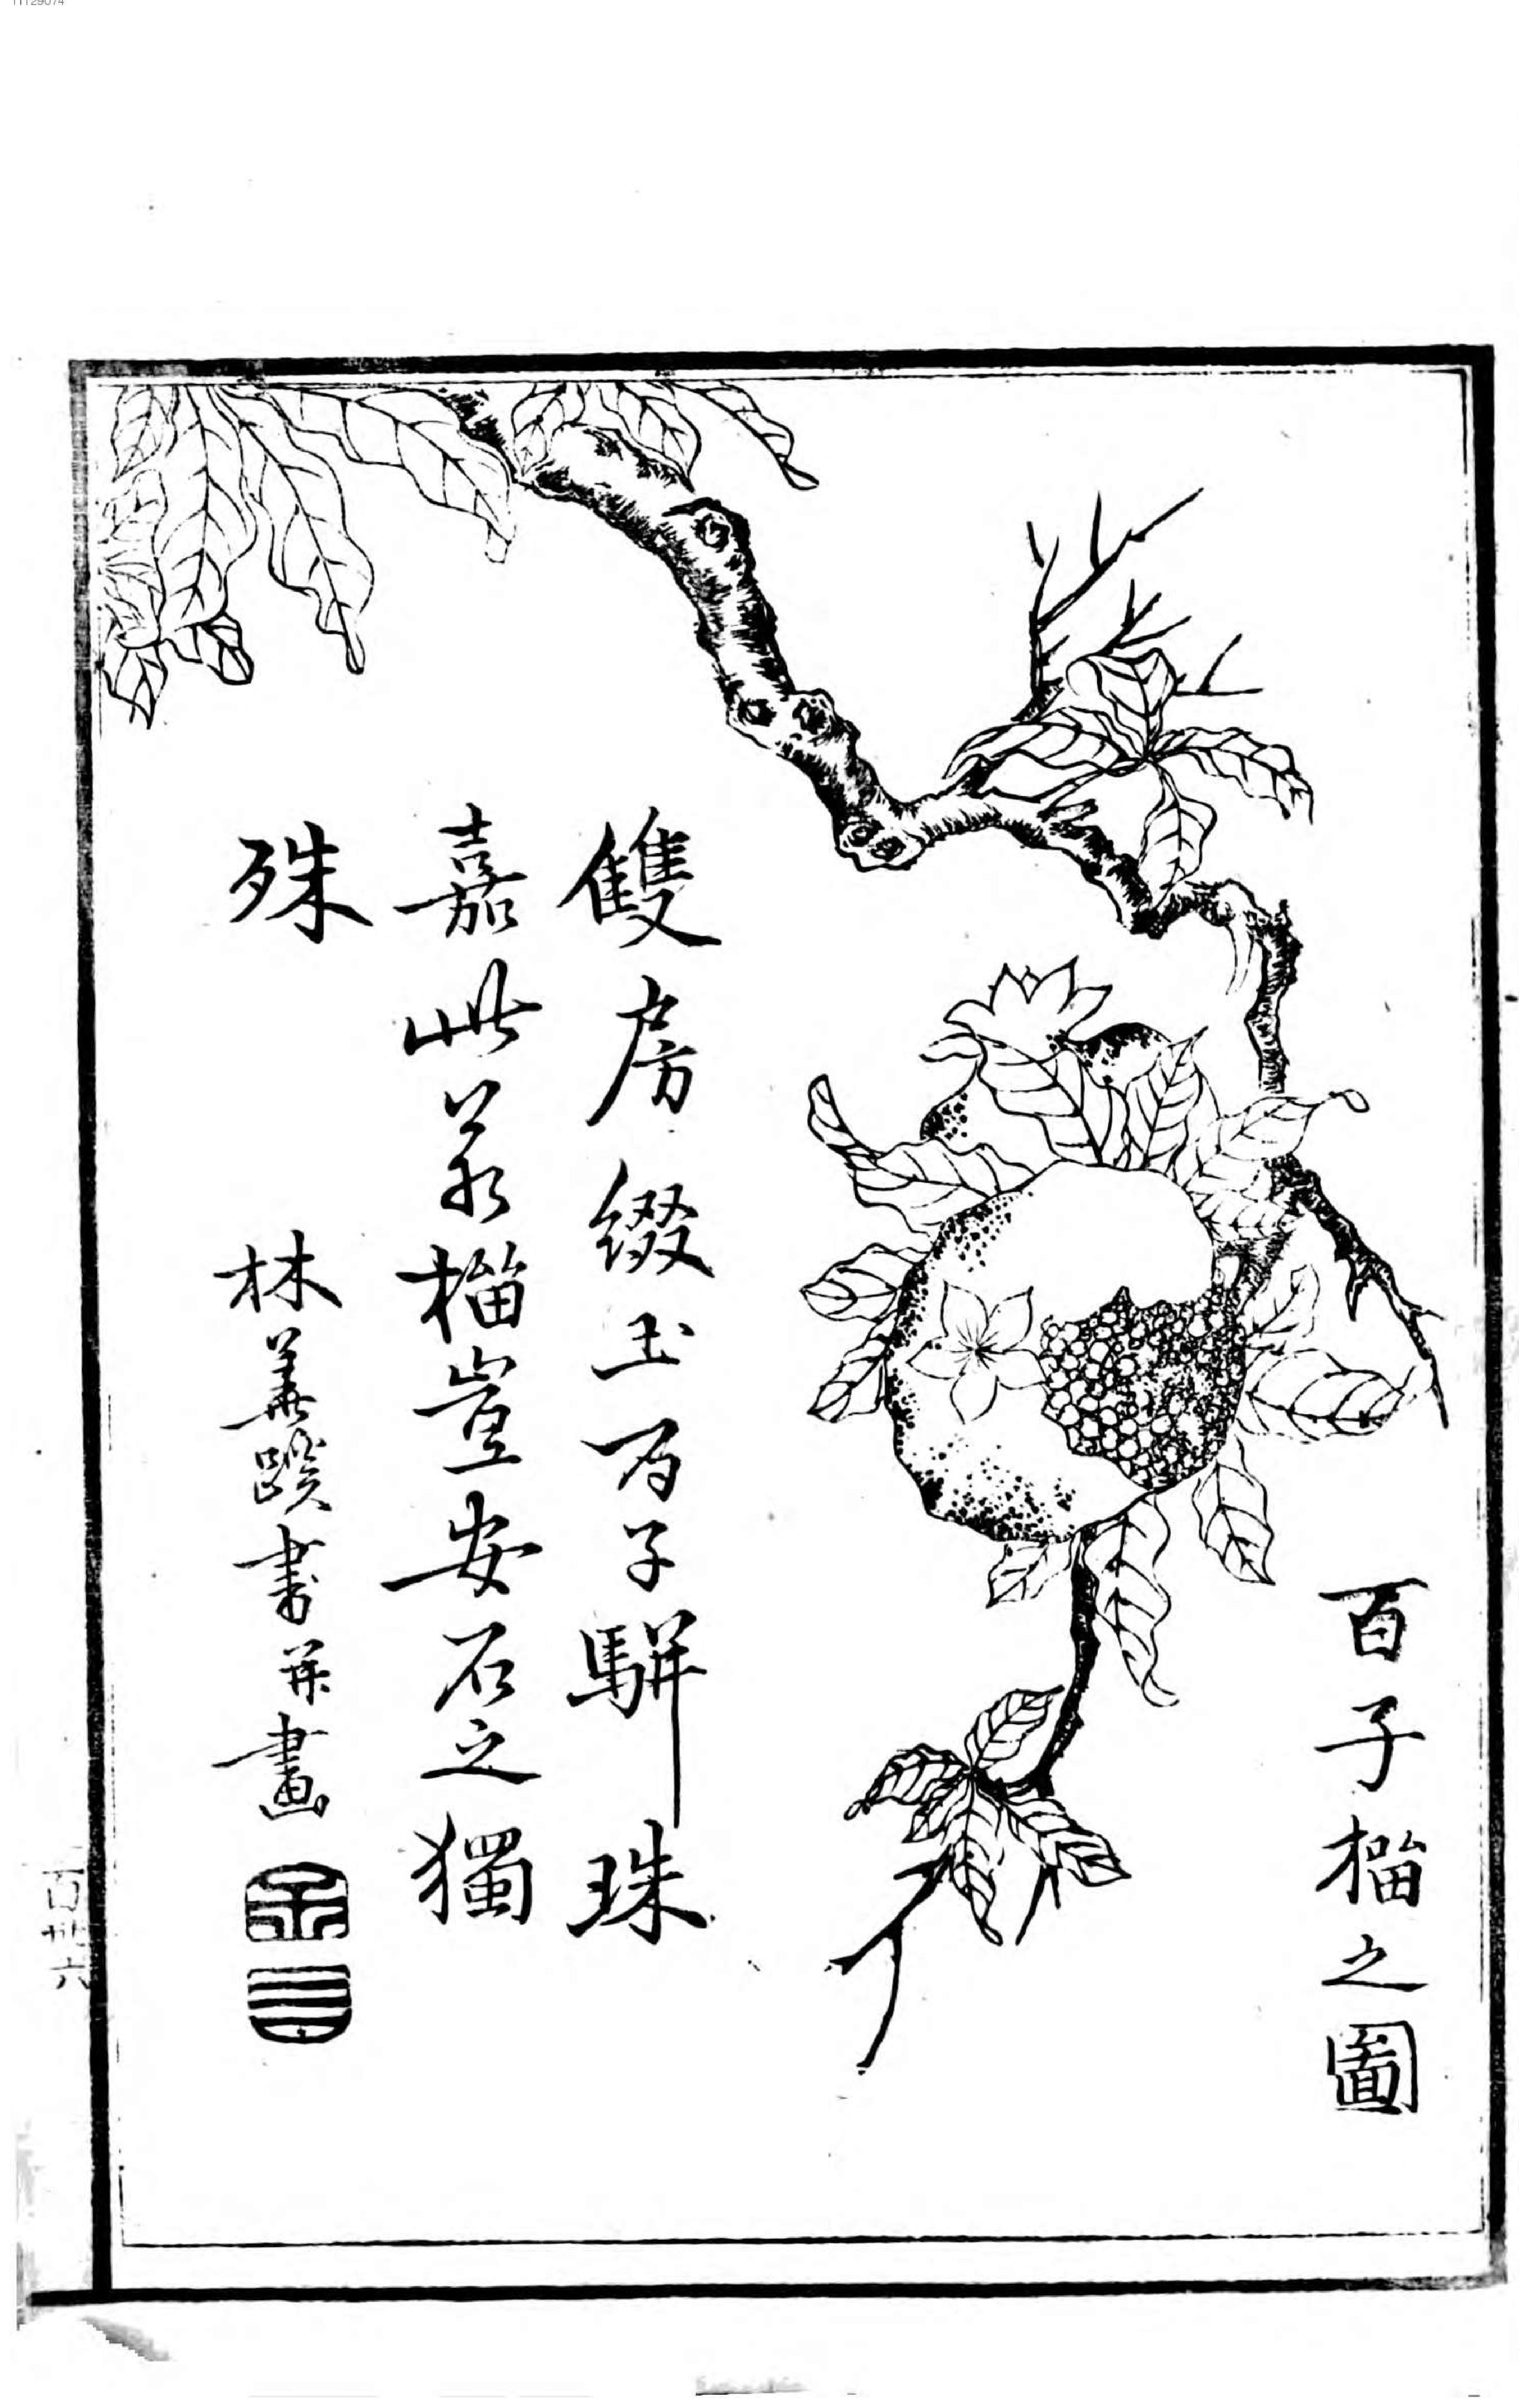 11129074
百子榴之圖
雙房綴玉百子駢珠
嘉此若榴豈安石之獨
殊
林蹊書并畫
百卅六